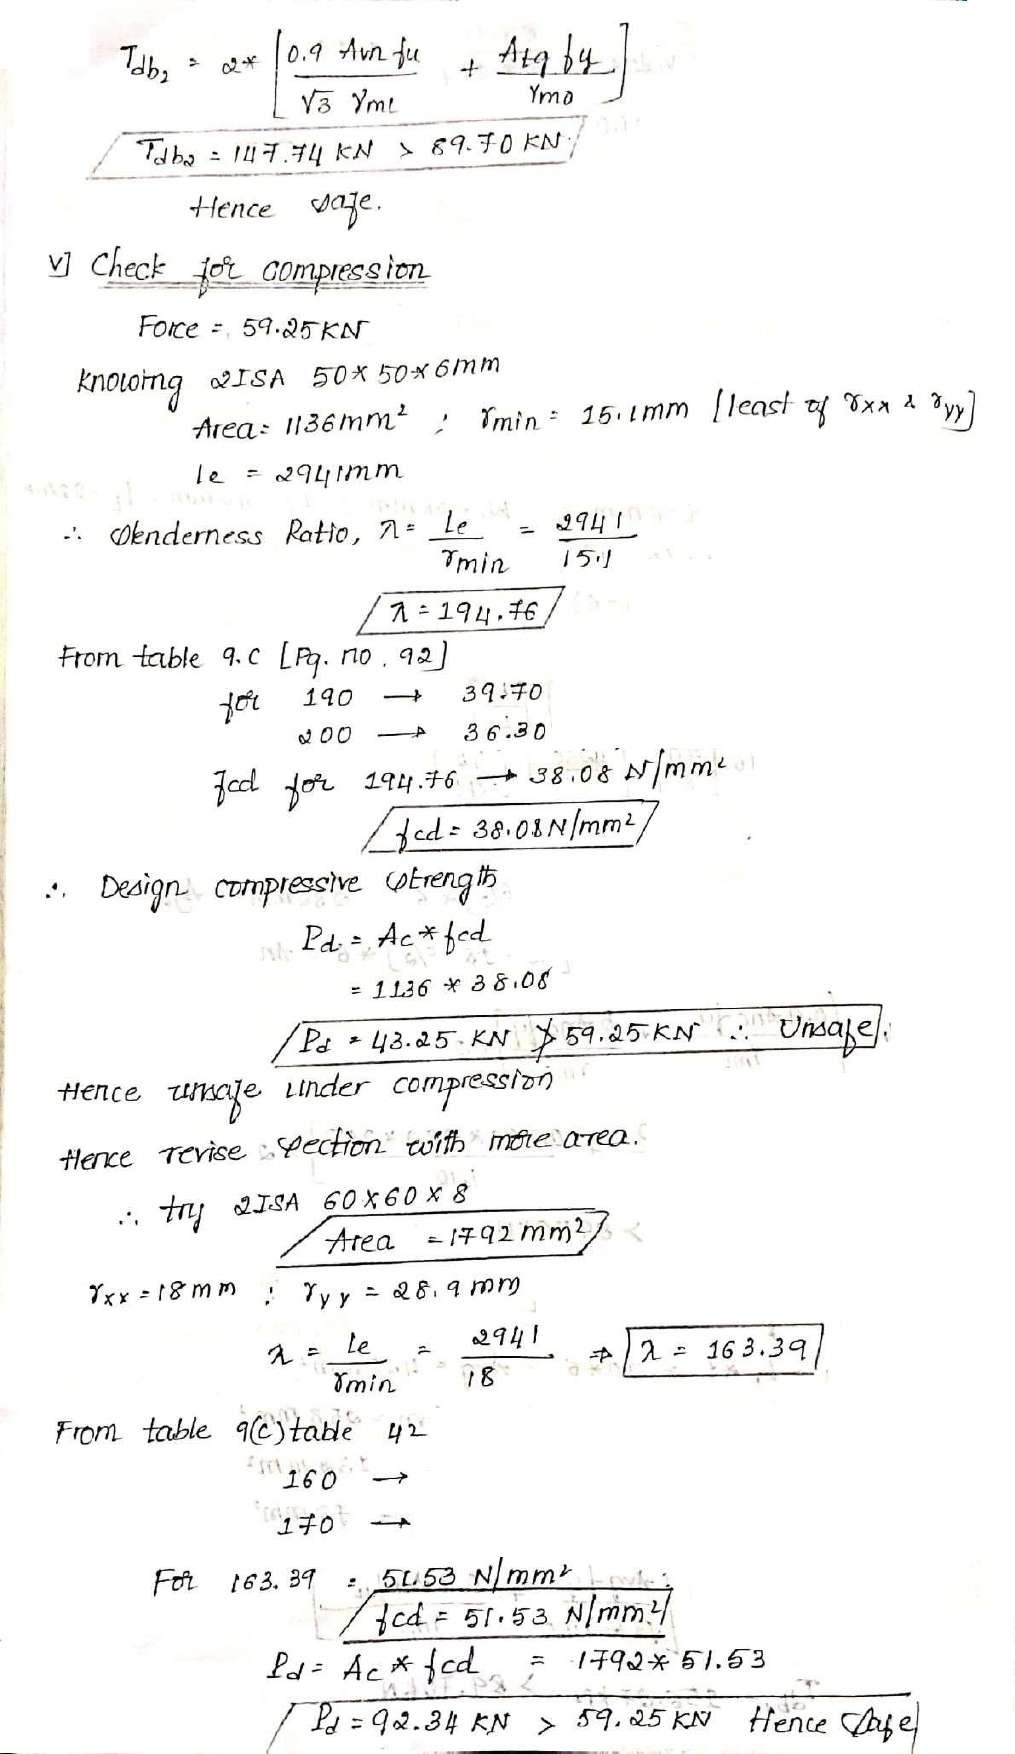 Tdb₂ = 2* [ 0.9 Avn fu / √3 γm1 + Atg fy / γmo ]
Tdb₂ = 147.74 KN > 89.70 KN
Hence safe.
V] Check for compression
Force = 59.25KN
Knowing 2ISA 50*50*6mm
Area= 1136mm² ; rmin = 15.1mm [least of rxx & ryy]
le = 2941mm
∴ Slenderness Ratio, λ= Le / rmin = 2941 / 15.1
λ = 194.76
From table 9.C [Pg. no. 42]
for 190 → 39.70
200 → 36.30
fcd for 194.76 → 38.08 N/mm²
fcd = 38.08N/mm²
∴ Design compressive strength
Pd = Ac * fcd
= 1136 * 38.08
Pd = 43.25 KN ≯ 59.25KN ∴ Unsafe.
Hence unsafe under compression
Hence revise section with more area.
∴ try 2ISA 60x60x8
Area = 1792mm²
rxx = 18mm ; ryy = 28.9mm
λ = Le / rmin = 2941 / 18 ⇒ λ = 163.39
From table 9(c) table 42
160 →
170 →
For 163.39 = 51.53 N/mm²
fcd = 51.53 N/mm²
Pd = Ac * fcd = 1792 * 51.53
Pd = 92.34 KN > 59.25KN Hence Safe